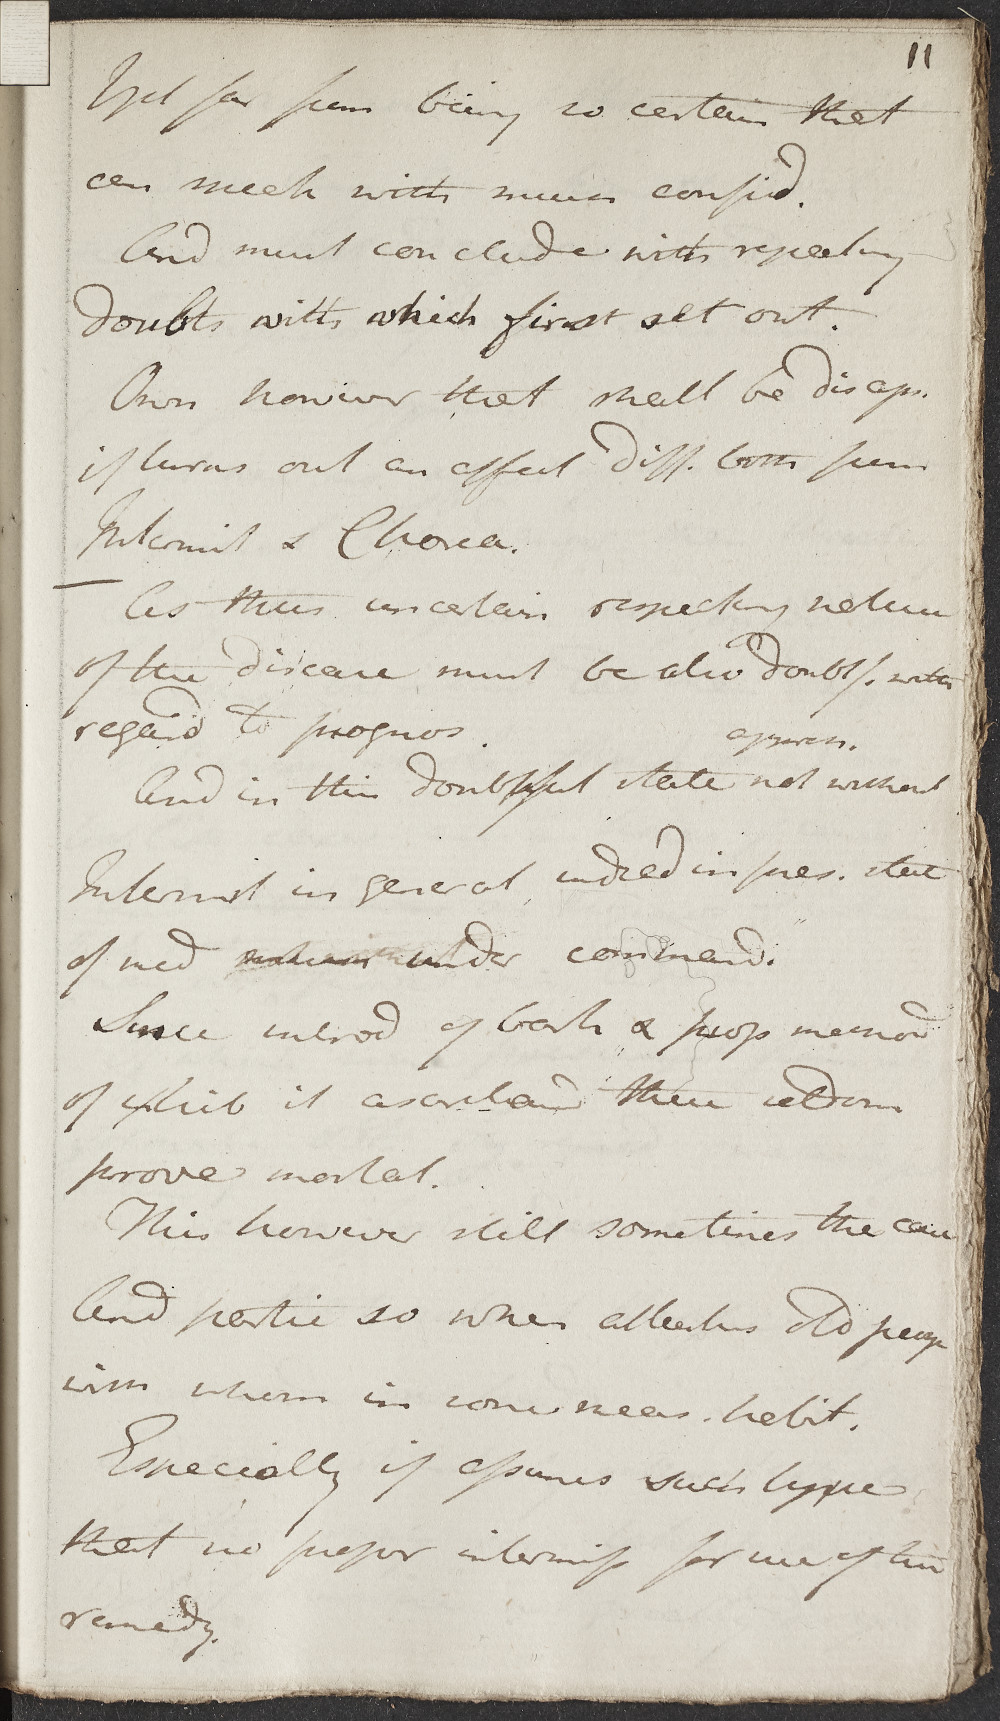 11
Yet far from being so certain that
can speak with much confid.
And must conclude with repeating
doubts with which first set out.
Own however that shall be disap.
if turns out an effect diff. both from
Intermit & Chorea.
As thus uncertain respecting nature
of the disease must be also doubtf. with
regard to prognos.
appreh.
And in this doubtful state not without
Intermit in general indeed in pres. state
of med under command.
Since introd of bark & prop method
of exhib it ascertained these seldom
prove mortal.
This however still sometimes the case
And partic so when attacks old peop
with whom in some meas. habit.
Especially if assumes such type
that no proper intermiss for use of this
remedy.